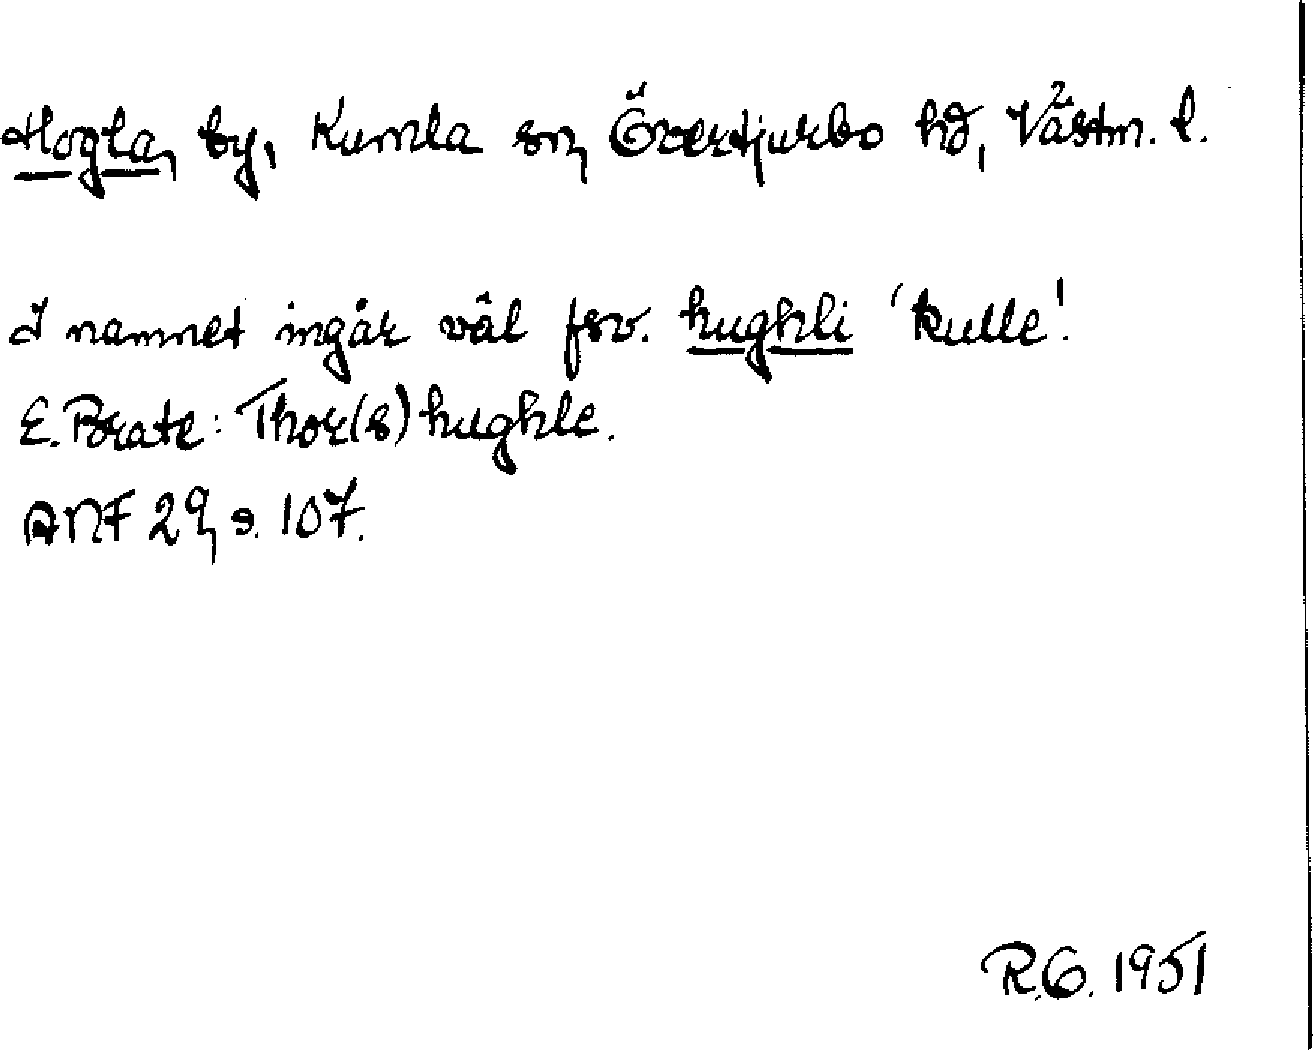 Hogla, by, Kumla sn, Övertjurbo hd, Västm. l.
I namnet ingår väl fsv. hughli 'kulle'.
E. Brate: Thor(s)hughle.
ANF 29, s. 107.
R.G. 1951